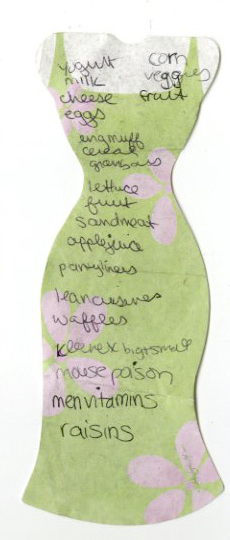 yogurt
milk
cheese
eggs
corn
veggies
fruit
engmuff
cereal
granbars
lettuce
fruit
sandmeat
applejuice
pantyliners
leancuisines
waffles
kleenex big+small
mouse poison
menvitamins
raisins